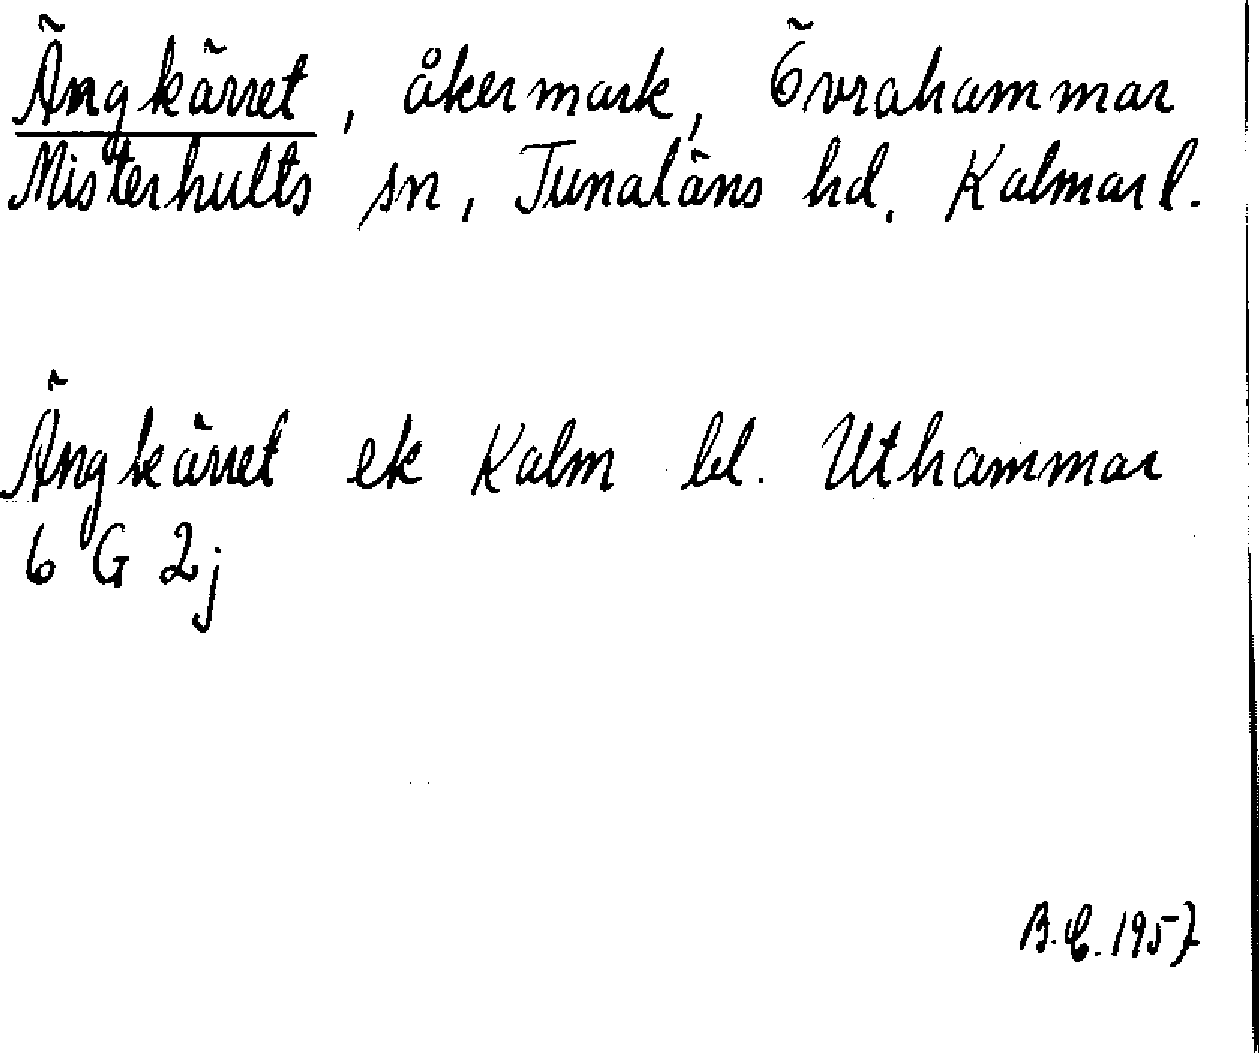 Ängkärret, åkermark, Övrahammar
Misterhults sn, Tunaläns hd, Kalmar l.
Ängkärret ek Kalm bl. Uthammar
6 G 2j
B.E. 1957